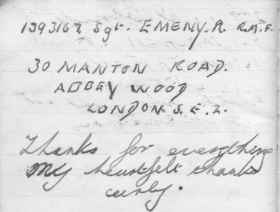 1393168 Sgt. EMENY. R R.A.F.
30 MANTON ROAD.
ABBEY WOOD
LONDON S.E.2.
Thanks for everything
My heartfelt thanks
curly.